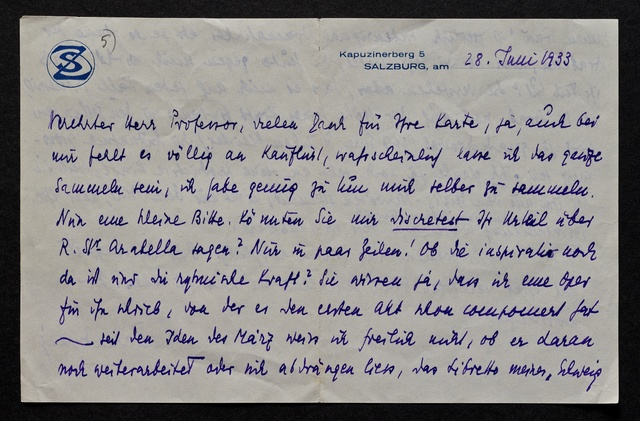 5)
SZ
Kapuzinerberg 5
SALZBURG, am 28. Juni 1933
Verehrter Herr Professor, vielen Dank für Ihre Karte, ja, auch bei
mir fehlt es völlig an Kauflust, wahrscheinlich lasse ich das ganze
Sammeln sein, ich habe genug zu tun mich selber zu sammeln.
Nun eine kleine Bitte. Könnten Sie mir discretest Ihr Urteil über
R. Str. Arabella sagen? Nur in paar Zeilen! Ob die inspiratio noch
da ist und die rytmische Kraft? Sie wissen ja, dass ich eine Oper
für ihn schrieb, von der er den ersten Akt schon componiert hat
– seit den Iden des März weiss ich freilich nicht, ob er daran
noch weiterarbeitet oder sich abdrängen liess, das Libretto meiner „Schweig